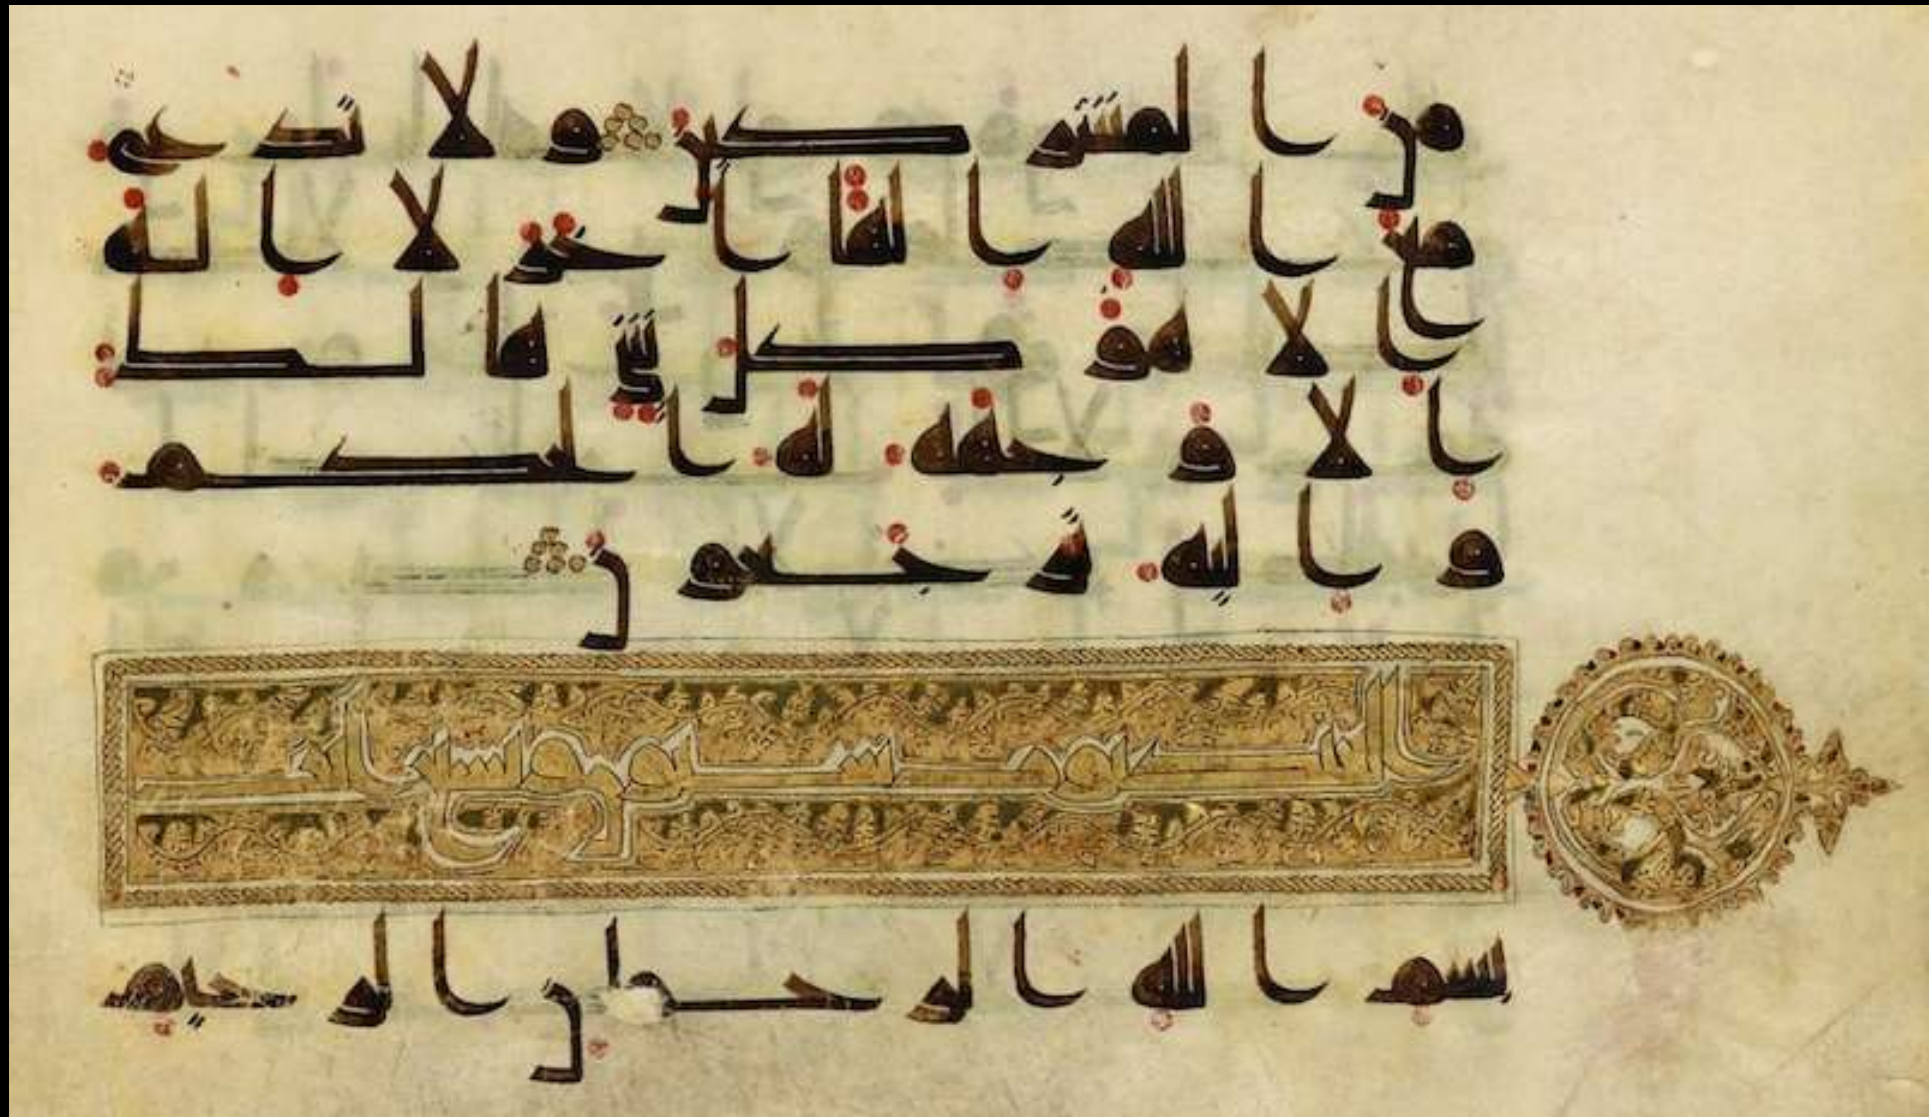 من المشركين ولا تدع
مع الله الها اخر لا اله
الا هو كل شي هالك
الا وجهه له الحكم
واليه ترجعون
ستون وتسع ايت
بسم الله الرحمن الرحيم